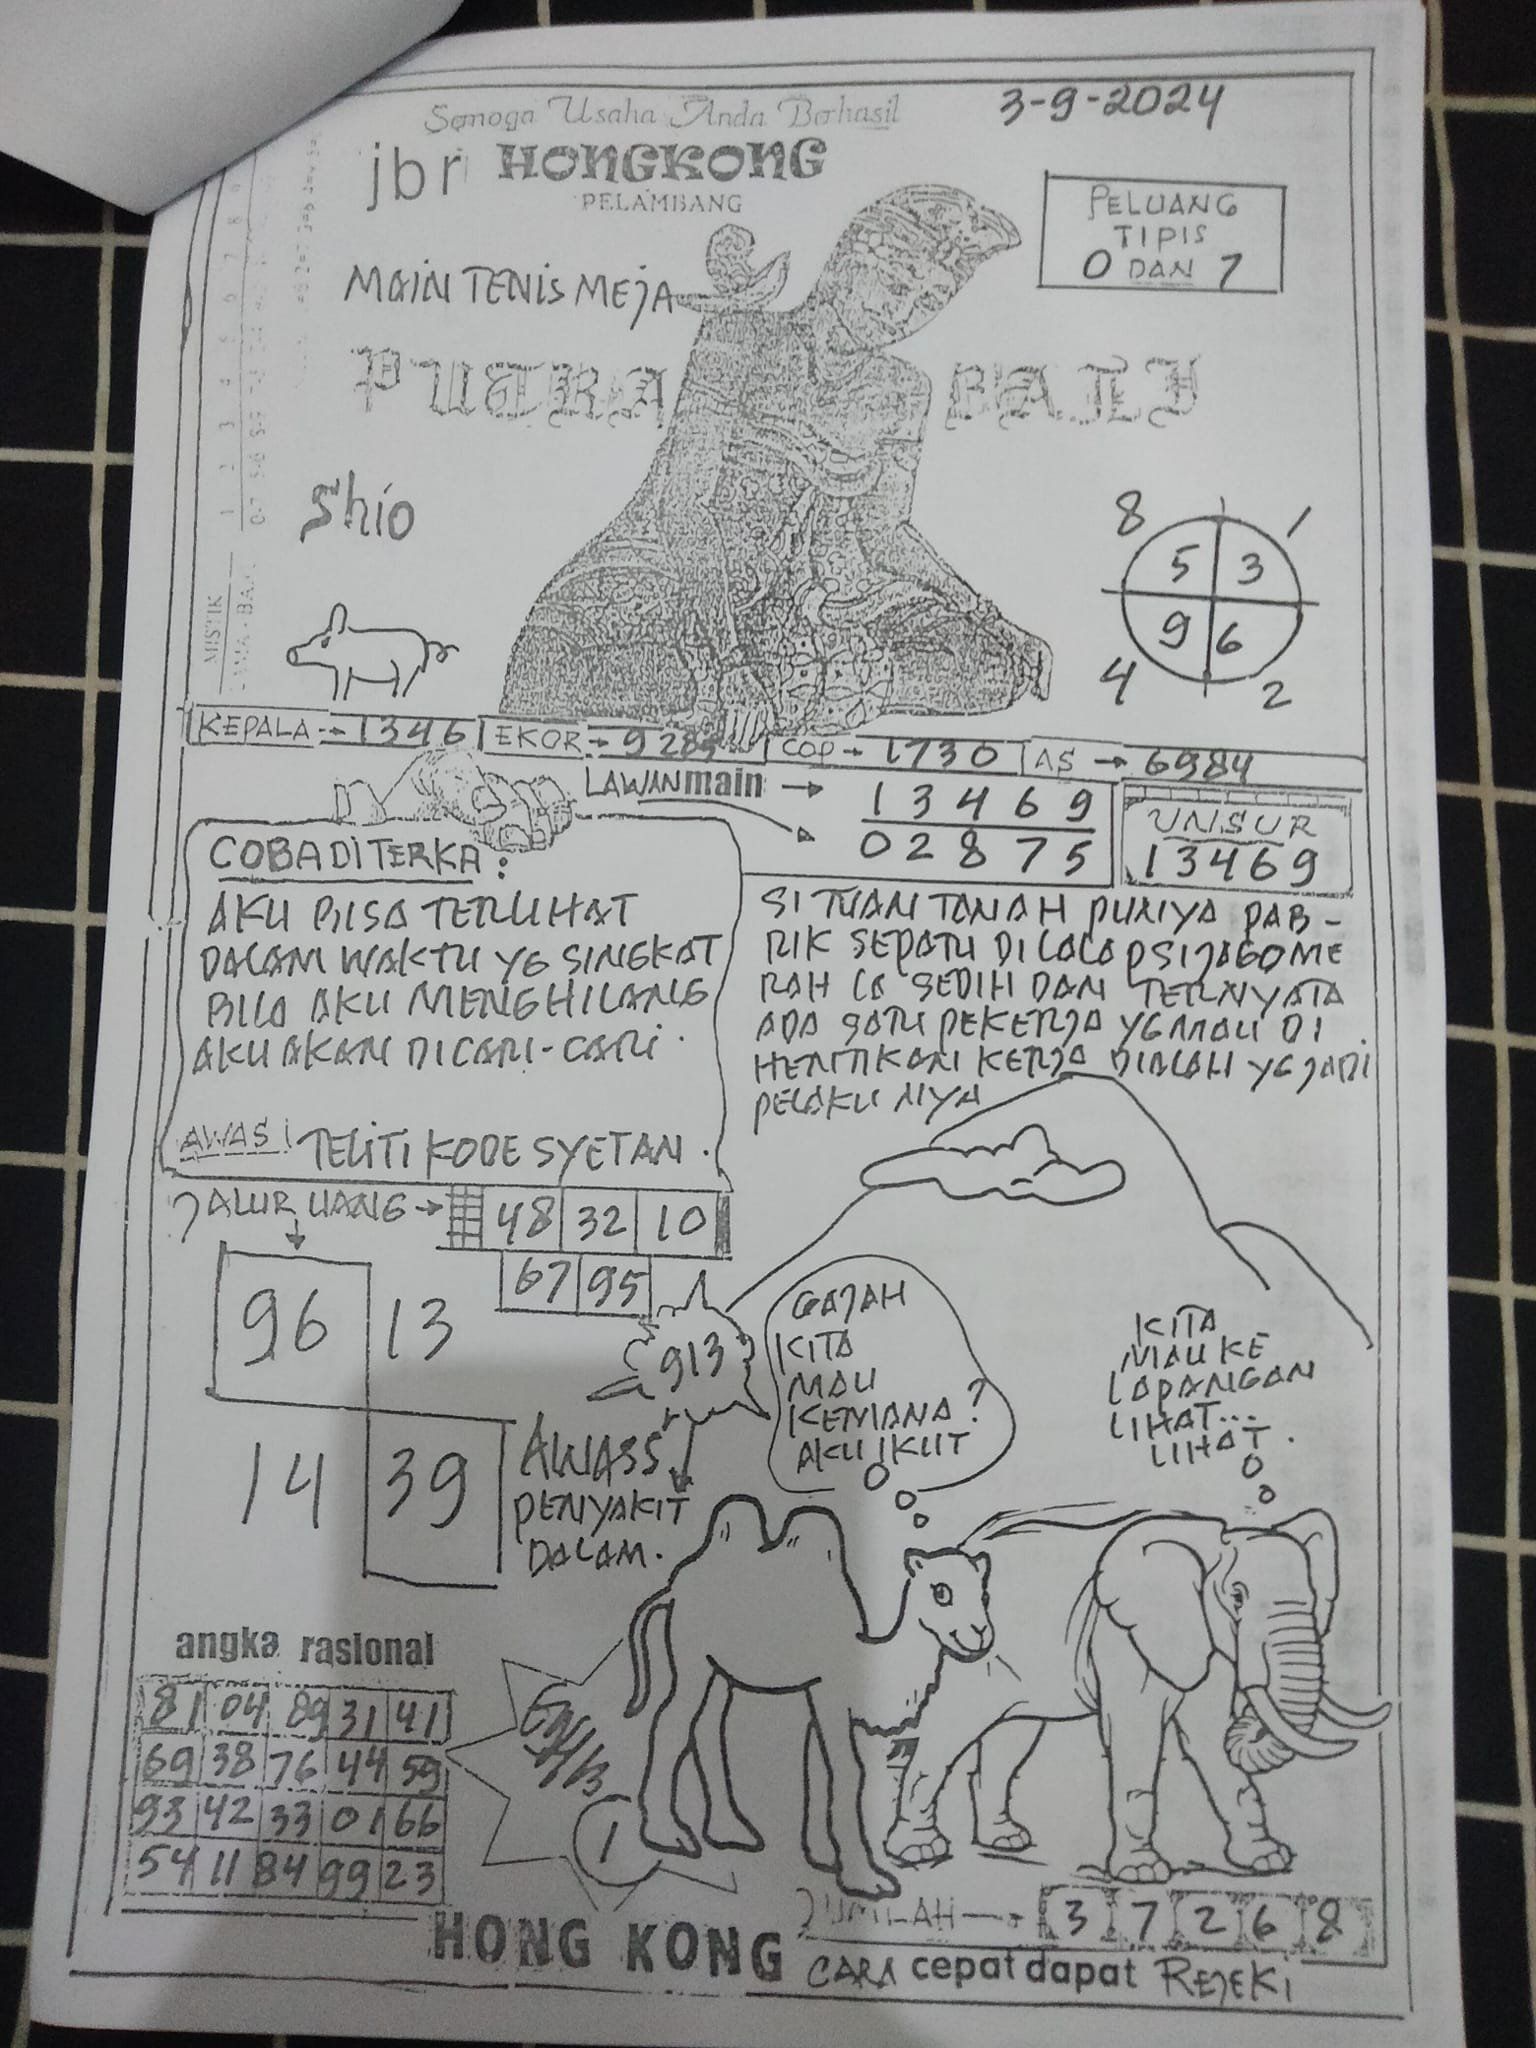 Semoga Usaha Anda Berhasil
3-9-2024
jbr HONGKONG
PELAMBANG
PELUANG
TIPIS
0 DAN 7
MAIN TENIS MEJA
PUTRA BALI
Shio
8 1
5 3
9 6
4 2
MISTIK
KEPALA → 1346
EKOR → 9285
COP → 1730
AS → 6984
LAWAN main → 13469
02875
UNSUR
13469
COBA DI TERKA :
AKU BISA TERLIHAT
DALAM WAKTU YG SINGKAT
BILA AKU MENGHILANG
AKU AKAN DICARI-CARI.
AWAS! TELITI KODE SYETAN.
SI TUAN TANAH PUNYA PAB-
RIK SEPATU DI
SEDIH DAN TERNYATA
ADA SATU PEKERJA YG MAU DI
HENTIKAN KERJA DIALAH YG JADI
PELAKU NYA
JALUR UANG → 48 32 10
67 95
96 13
14 39
913
AWASS
PENYAKIT
DALAM.
GAJAH
KITA
MAU
KEMANA?
AKU IKUT
KITA
MAU KE
LAPANGAN
LIHAT...
LIHAT.
angka rasional
81 04 89 31 41
69 38 76 44 59
93 42 33 01 66
54 11 84 99 23
1
JUMLAH → 3 7 2 6 8
HONG KONG
CARA cepat dapat REJEKI